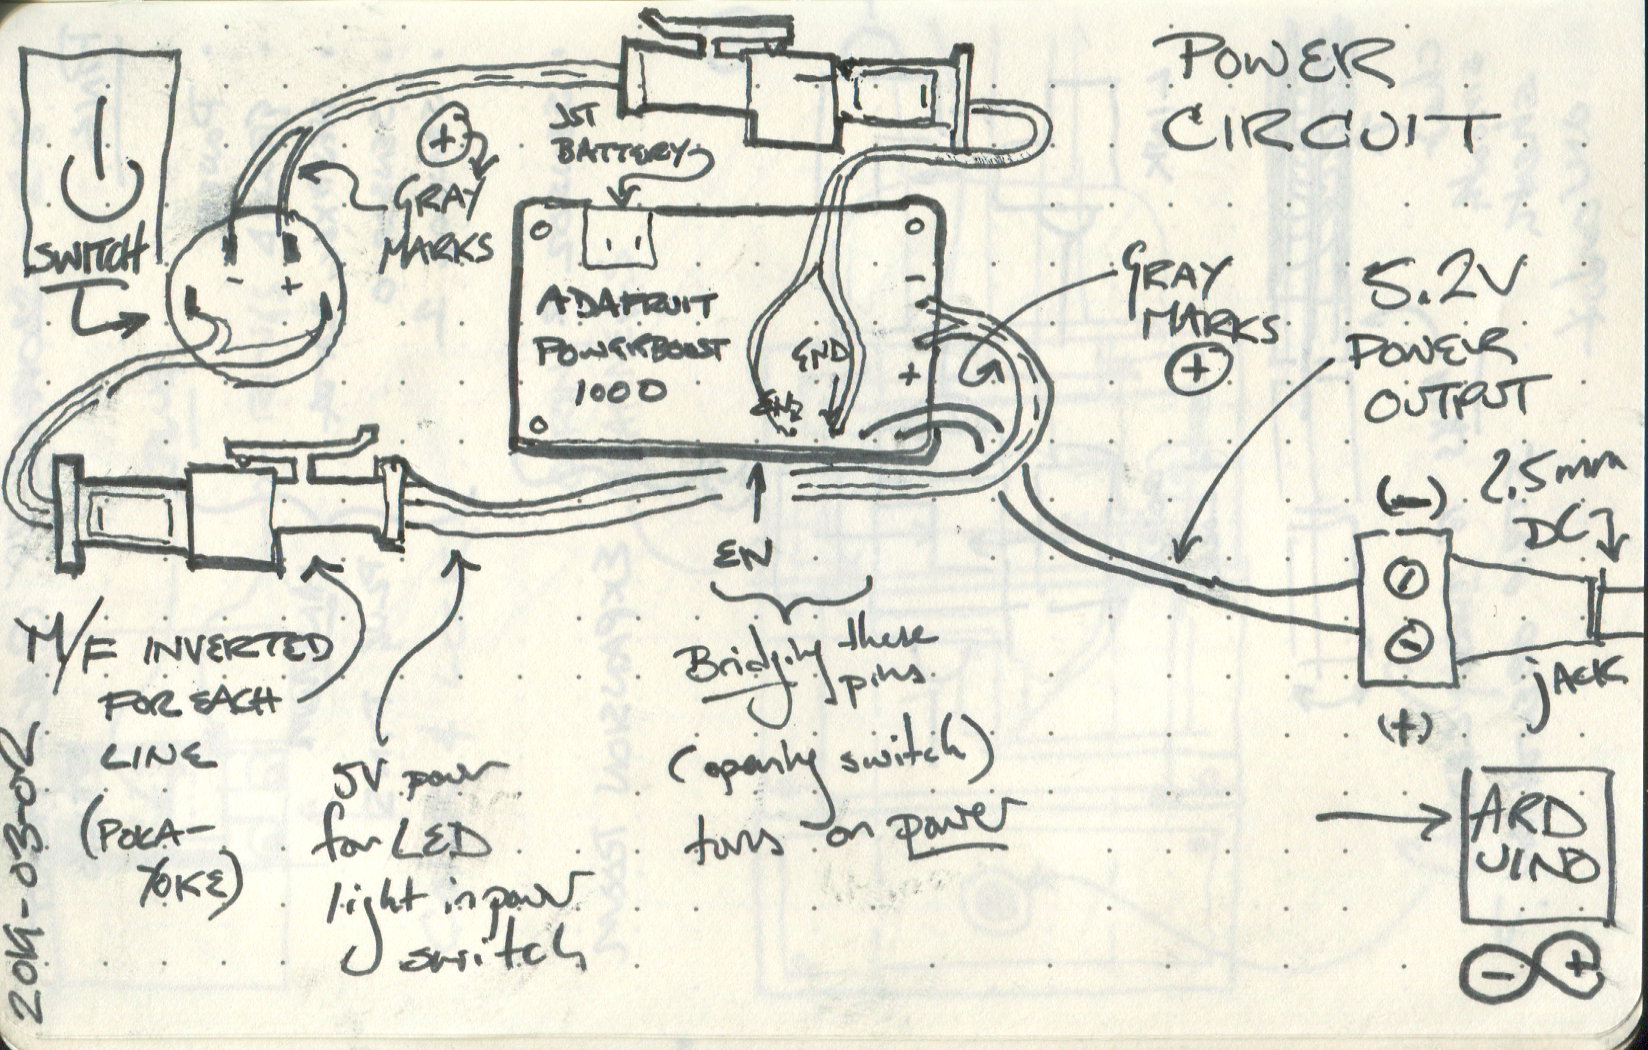 POWER
CIRCUIT
SWITCH
- +
+
GRAY
MARKS
JST
BATTERY
ADAFRUIT
POWERBOOST
1000
GND
-
+
GRAY
MARKS
+
5.2V
POWER
OUTPUT
2.5mm
DC
jACK
(-)
(+)
EN
Bridging these
pins
(opening switch)
turns on power
M/F INVERTED
FOR EACH
LINE
(POKA-
YOKE)
5V power
for LED
light in power
switch
ARD
UINO
- +
2019-03-02